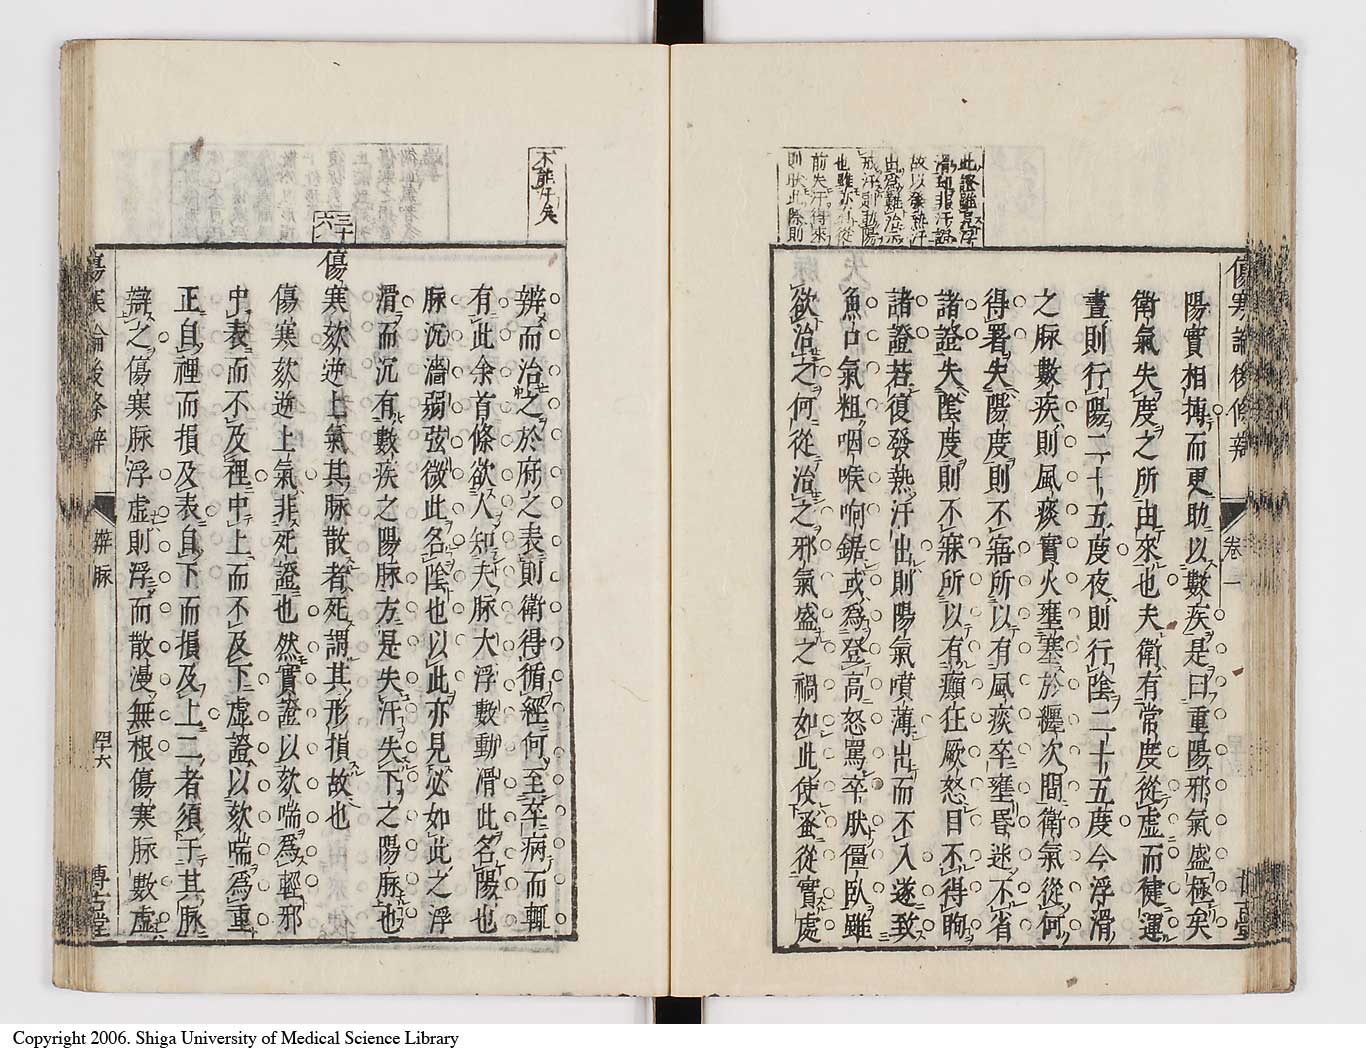 此證雖
汗
故以發熱汗
出爲難治
戒汗則動陽
也雖亦從
前失汗得來
則狀此除則
陽實相搏而更助以數疾是曰重陽邪氣盛極矣
衛氣失度之所由來也夫衛有常度從虛而健運
晝則行陽二十五度夜則行陰二十五度今浮滑
之脉數疾則風痰實火壅塞於纏次間衛氣從何
得署失陽度則不寤所以有風痰卒壅昏迷不省
諸證失陰度則不寐所以有癲狂厥怒目不得眴
諸證若復發熱汗出則陽氣噴薄出而不入遂致
魚口氣粗咽喉响鋸或爲登高怒罵卒肰僵臥雖
欲治之何從治之邪氣盛之禍如此使蚤從實處
傷寒論後條辨
卷一
不能汗矣
三十六
辨而治之於府之表則衛得循經何至卒病而輒
有此余首條欲人知夫脉大浮數動滑此名陽也
脉沉濇弱弦微此名陰也以此亦見必如此之浮
滑而沉有數疾之陽脉方是失汗失下之陽脉也
傷寒欬逆上氣其脉散者死謂其形損故也
傷寒欬逆上氣非死證也然實證以欬喘爲輕邪
中表而不及裡中上而不及下虛證以欬喘爲重
正自裡而損及表自下而損及上二者須于其脉
辯之傷寒脉浮虛則浮而散漫無根傷寒脉數虛
傷寒論後條辨
辨脉
四十六
博古堂
Copyright 2006. Shiga University of Medical Science Library